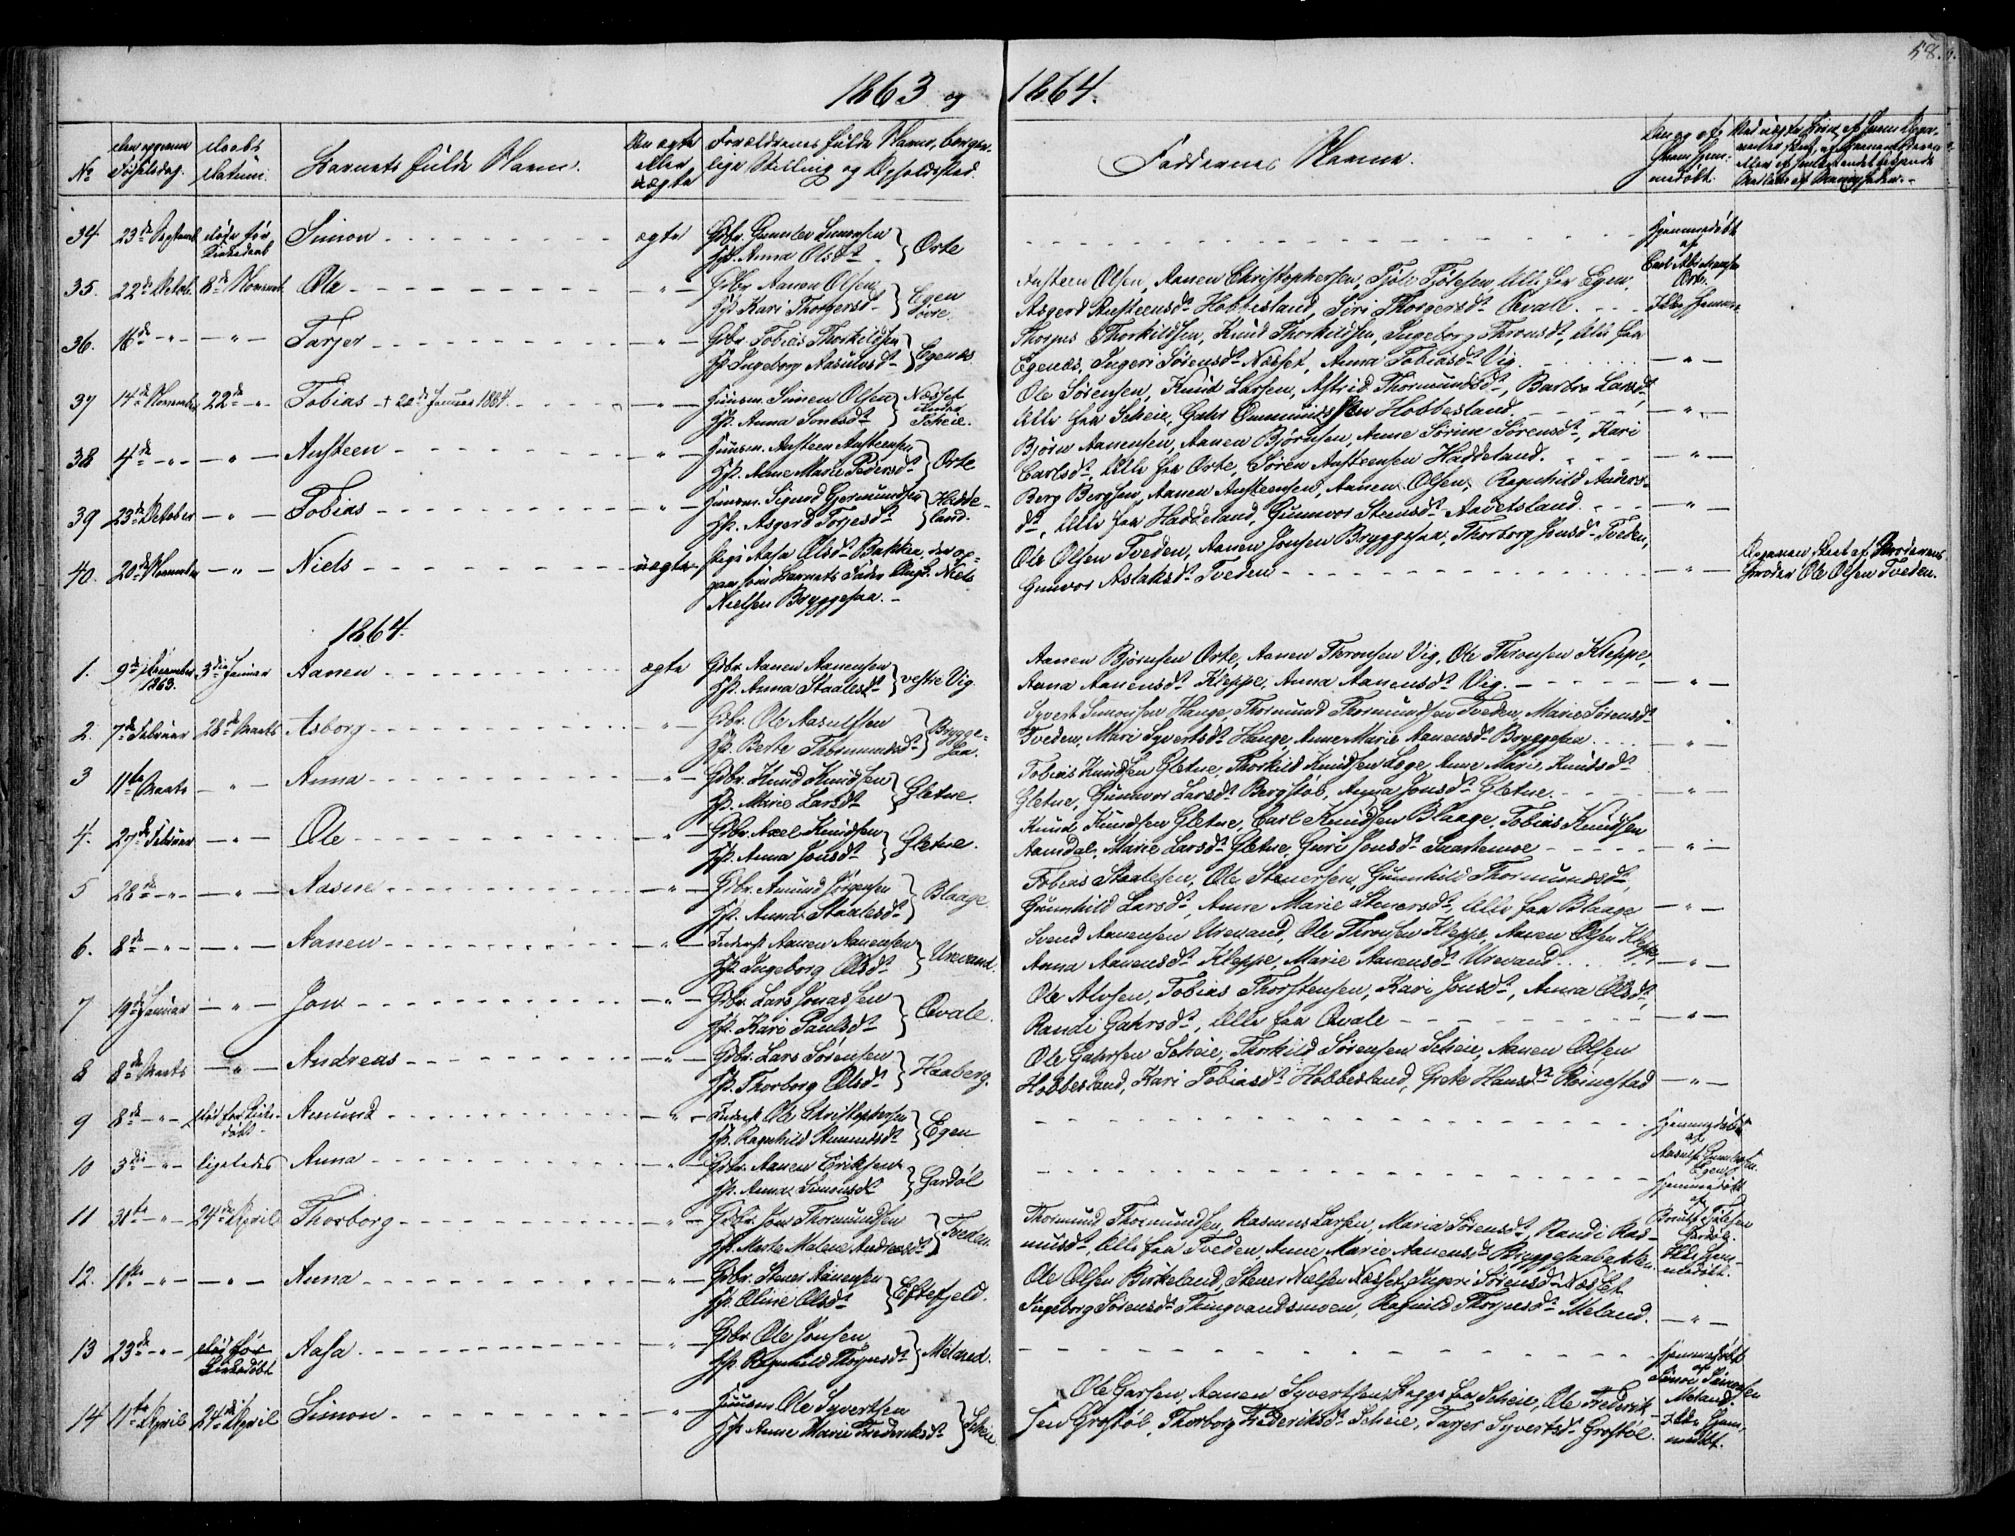 58.
1863 og 1864.
No
den opgivne Fødselsdag.
Daabs Datum.
Barnets fulde Navn.
Om ægte eller uægte
Forældrenes fulde Navn, borgerlige Stilling og Opholdssted.
Faddernes Navne.
Om og af Hvem hjemmedøbt.
34 23de Septemb døde før Kirkedaab Simon ægte Gdbr. Gunulv Simonsen Hst. Anna Olsdt Orte
Hjemmedøbt af Carl Orte.
35. 22de Octob. 8de Novembr Ole - " - Gdbr Aanen Olsen Hst Kari Thorgersdt Egen
Austeen Olsen, Aanen Christophersen, Fjøle Fjølesen, Alle fra Egen,
Asgerd Austeensdt Hobbesland, Siri Thorgersdt Qvale.
36. 16de - " - - " - Tarjer - " - Gdbr Tobias Thorkildsen Hst Ingeborg Aasulvsdt Egenæs.
Thorkildsen, Knud Thorkildsen, Ingeborg Alle fra
Egenæs, Ingeri Sørensdt Næsset, Anna Tobiasdt Vig. - " -
37 14de Novembr 22de - " - Tobias + 20de Januar 1864. - " - Huusm. Simen Olsen Hst. Anna Næsset under Scheie.
Ole Sørensen, Knud Larsen, Astrid Thormundsdt, Barbro Larsdt,
Alle fra Scheie, Gahr Hobbesland. - " -
38 4de - " - - " - Austeen - " - Huusm. Austeen Austeensen Hst. Anne Marie Pedersdt Orte
Bjørn Aanensen, Aanen Bjørnsen, Anne Sørine Sørensdt, Kari
Carlsdt, Alle fra Orte, Søren Austeensen Haddeland. - " -
39 23de October - " - Tobias - " - Huusm. Sigurd Gjermundsen Hst. Asgerd Torjesdt Haddeland.
Berg Bergsen, Aanen Austeensen, Aanen Olsen, Ragnhild Andersdt,
Alle fra Haddeland, Gunvor Steensdt - " -
40. 20de Novembr - " - Niels uægte Pige Aasa Olsdt Bakken, der opgav som Barnets Fader Ungk. Niels Nielsen Bryggesaa.
Ole Olsen Tveden, Aanen Jonsen Bryggesaa, Thorborg Jonsdt Tveden,
Gunvor Aslaksdt Tveden - " - Opgaven skeet af Moderens Broder Ole Olsen Tveden.
1864.
1. 9de December 1863. 3die Januar Aanen ægte Gdbr. Aanen Aanensen Hst. Anna Staalesdt vestre Vig.
Aanen Bjørnsen Orte, Aanen Thronsen Vig, Ole Thronsen Kleppe,
Anna Aanensdt Kleppe, Anna Aanensdt Vig. - " -
2. 7de Februar 28de Marts Asborg - " - Gdbr. Ole Aasulfsen Hst. Berte Thormundsdt Bryggesaa.
Syvert Simonsen Hauge, Thormund Thormundsen Tveden, Marie Sørensdt
Tveden, Mari Syvertsdt Hauge, Anne Marie Aanensdt Bryggesaa - " -
3 11te Marts - " - Anna - " - Gdbr. Knud Knudsen Hst. Marie Larsdt Gletne.
Tobias Knudsen Gletne, Thorkild Knudsen Lege, Anne Marie Knudsdt
Gletne, Gunvor Larsdt Bergstøl, Anna Jonsdt Gletne. - " -
4. 27de Februar - " - Ole - " - Gdbr. Axel Knudsen Hst. Anna Jonsdt Gletne.
Knud Knudsen Gletne, Carl Knudsen Blaage, Tobias Knudsen
Aamdal, Marie Larsdt Gletne, Guri Jonsdt Snartemoe - " -
5 28de - " - - " - Aasne - " - Gdbr. Amund Jørgensen Hst. Anna Staalesdt Blaage.
Tobias Staalesen, Ole Stenersen, Gunhild Thormundsdt,
Gunhild Larsdt, Anne Marie Stenersdt, Alle fra Blaage - " -
6. 8de - " - - " - Aanen - " - Inderst Aanen Aanensen Hst. Ingeborg Olsdt Urevand.
Svend Aanensen Urevand, Ole Thronsen Kleppe, Aanen Olsen Kleppe,
Anna Aanensdt Kleppe, Marie Aanensdt Urevand. - " -
7 19de Januar - " - Jon - " - Gdbr. Lars Jonassen Hst. Kari Paulsdt Qvale.
Ole Alvsen, Tobias Thorstensen, Kari Jonsdt, Anna Olsdt,
Randi Gahrsdt, Alle fra Qvale - " -
8 8de Marts - " - Andreas - " - Gdbr. Lars Sørensen Hst. Thorborg Olsdt Haaberg.
Ole Gahrsen Scheie, Thorkild Sørensen Scheie, Aanen Olsen
Hobbesland, Kari Tobiasdt Hobbesland, Grete Hansdt Roinestad - " -
9 8de - " - død før Kirkedøbt. Amund - " - Inderst Ole Christophersen Hst. Ragnhild Amundsdt Egen
Hjemmedøbt af Aasulf Egenes
10 3die - " - ligeledes Anna - " - Gdbr. Aanen Eriksen Hst. Anna Simonsdt Gardøl
Hjemmedøbt af Fjølesen Gardøl.
11 31te - " - 24de April Thorborg - " - Gdbr. Jon Thormundsen Hst. Marte Malene Andreasdt Tveden.
Thormund Thormundsen, Rasmus Larsen, Maria Sørensdt, Randi Rasmusdt,
Alle fra Tveden, Anne Marie Aanensdt Bryggesaabakken. Ikke hjemmedøbt.
12. 1ste - " - - " - Anna - " - Gdbr. Stener Aanensen Hst. Oline Olsdt Eftefjeld.
Ole Olsen Birkeland, Stener Nielsen Næsset, Ingeri Sørensdt Næsset
Ingeborg Sørensdt Thingvandsmoen, Ragnild Thorjusdt Meland. - " -
13 23de - " - død før Kirkedøbt Aasa - " - Gdbr. Ole Jonsen Hst. Ragnhild Thorjusdt Meland.
Hjemmedøbt af Simonsen Meland.
14 11te April 24de April Simon - " - Huusm Ole Syvertsen Hst. Anne Marie Frederiksdt Scheie
Ole Garsen, Aanen Syvertsen, Begge fra Scheie, Ole Frederiksen
Grostøl, Thorborg Frederiksdt Scheie, Tarjer Syvertsdt Grostøl. Ikke hjemmedøbt.